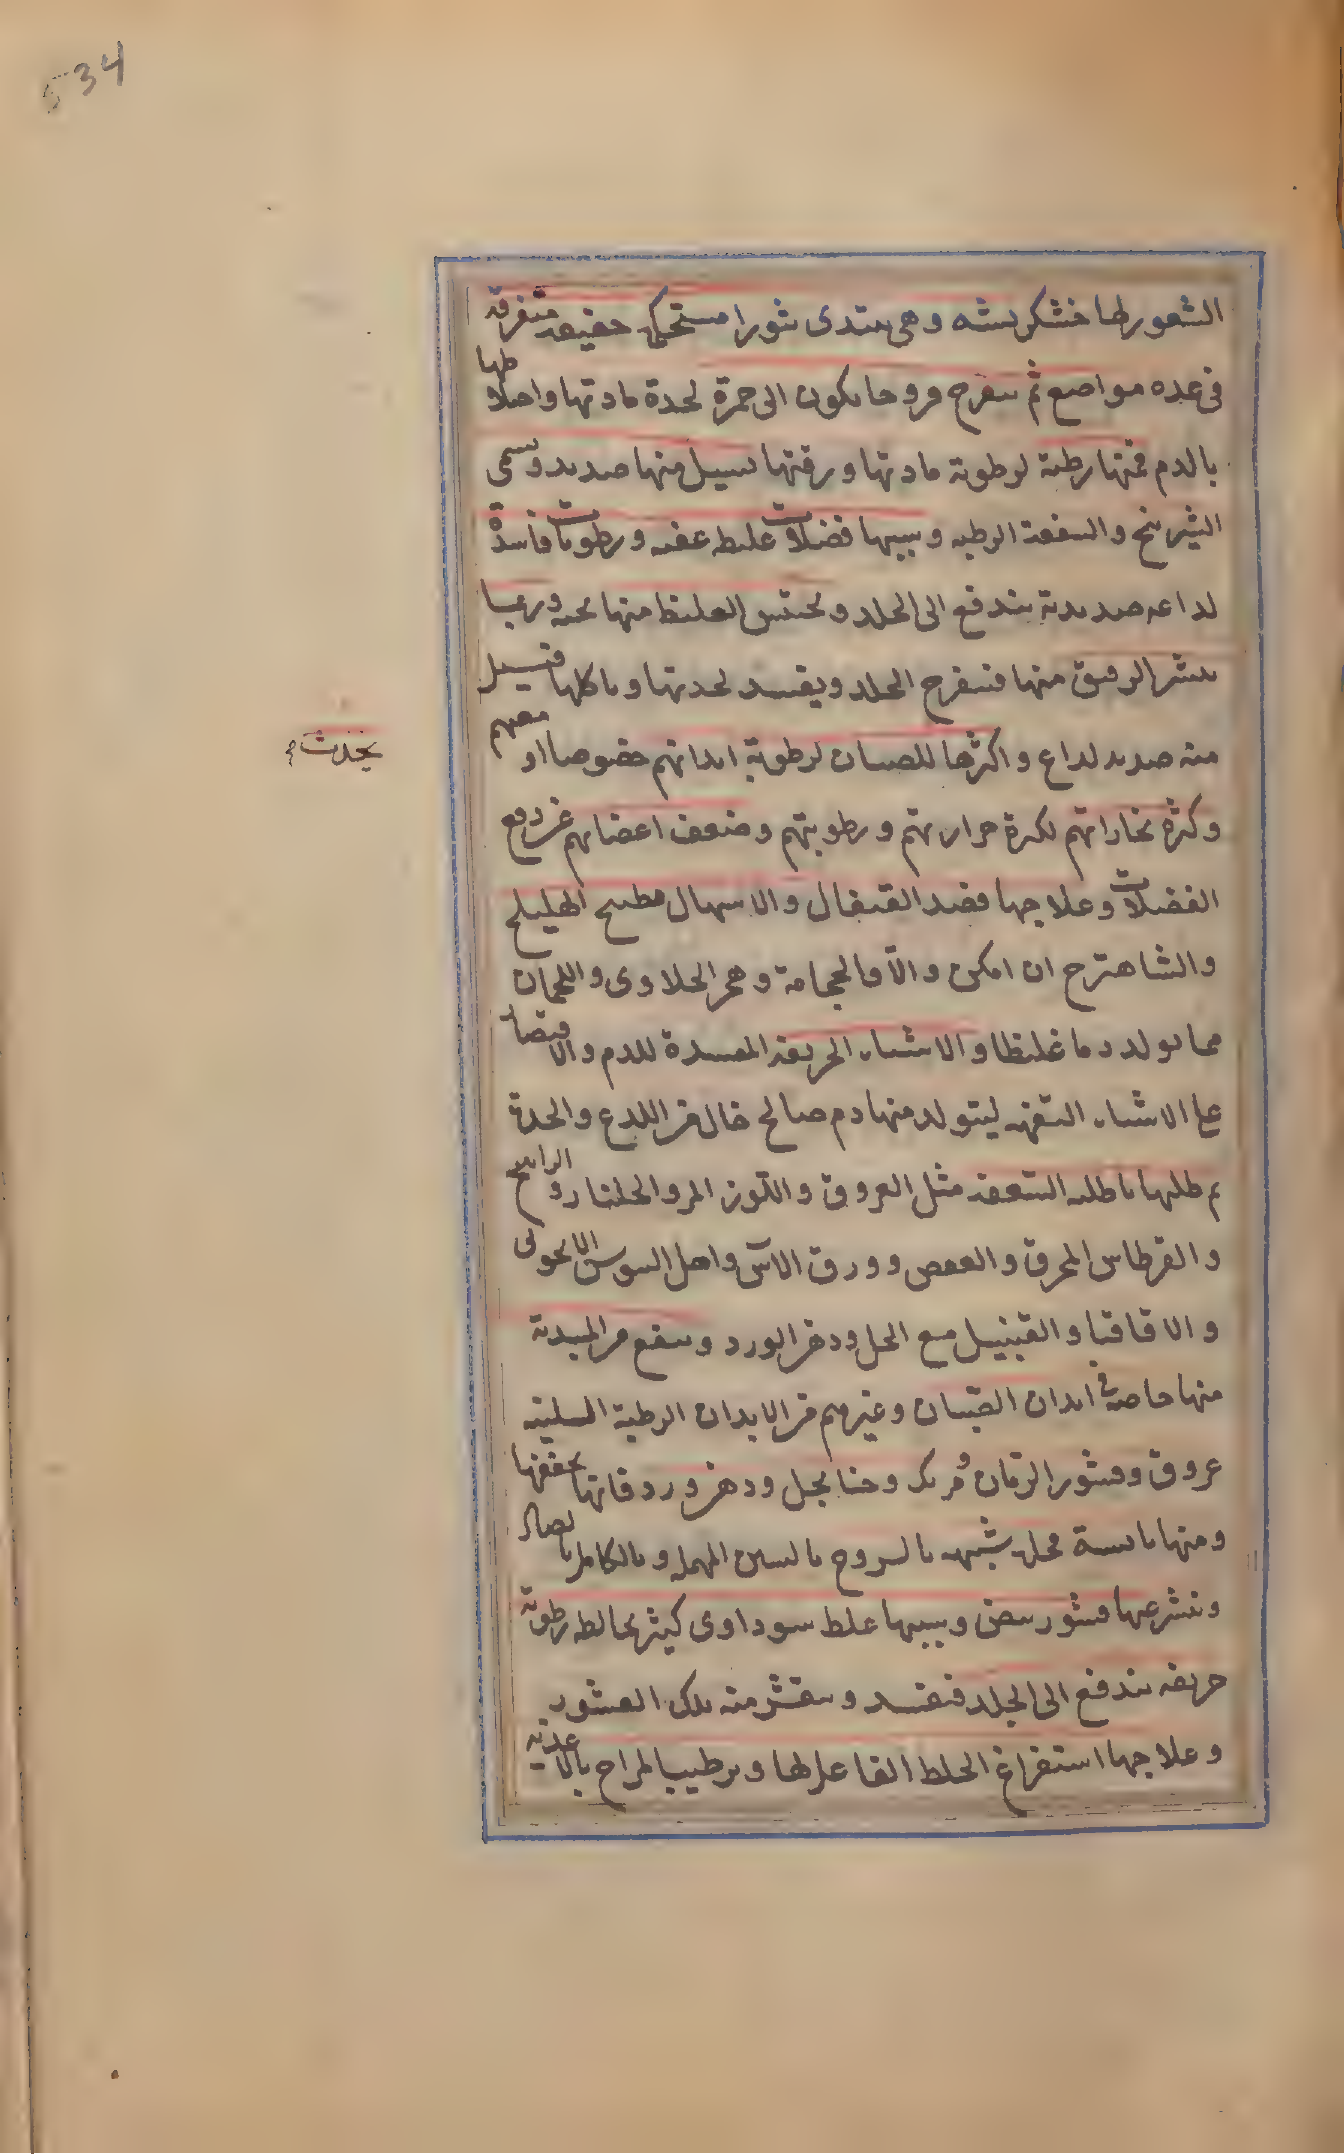 534
الشعور لها خشكريشه وهى يبتدى بثورا مستحكه خفيفه متفرقه
فى عده مواضع ثم يتقرح قروحا يكون الى حمرة لحدة مادتها واختلاطها
بالدم فمنها رطبة لرطوبة مادتها ورقتها يسيل منها صديد ويسمى
الشيرينج والسعفة الرطبه وسببها فضلات غليظه عفنه ورطوبات فاسدة
لداعه صديدية يندفع الى الجلد ويحتبس الغليظ منها تحته وربما
ينشر الرقيق منها فيتقرح الجلد ويفسد لحدتها وياكلها فيسيل
منه صديد لداع واكثرها للصبيان لرطوبة ابدانهم خصوصا او معهم
يحدث
وكثرة بخاراتهم لكثرة حرارتهم ورطوبتهم وضعف اعضائهم عن دفع
الفضلات وعلاجها فصد القيفال والاسهال بمطبوخ الهليلج
والشاهترج ان امكن والا فالحجامة وهجر الحلاوى واللحمان
مما يولد دما غليظا والاشياء الحريفه المفسدة للدم والاقتصار
على الاشياء التفهه ليتولد منها دم صالح خال من اللدع والحدة
ثم طليها باطليه السعفه مثل العروق واللوز المر والجلنار والراتينج
والقرطاس المحرق والعفص وورق الآس واصل السوس الاسمانجونى
والاقاقيا والقنبيل مع الخل ودهن الورد وينفع من المبتدية
منها خاصة فى ابدان الصبيان وغيرهم من الابدان الرطبة اللينه
عروق وقشور الرمان ومرتك وحنا بخل ودهن ورد فانها تجففها
ومنها يابسة محله شبيه بالسروح بالسين المهمله وبالكاملر يصال
وينشر عنها قشور بيض وسببها خلط سوداوى كثير يخالطه رطوبة
حريفه يندفع الى الجلد فيفسد ويتقشر منه تلك القشور
وعلاجها استفراغ الخلط الفاعل لها وترطيب المزاج بالاغذيه